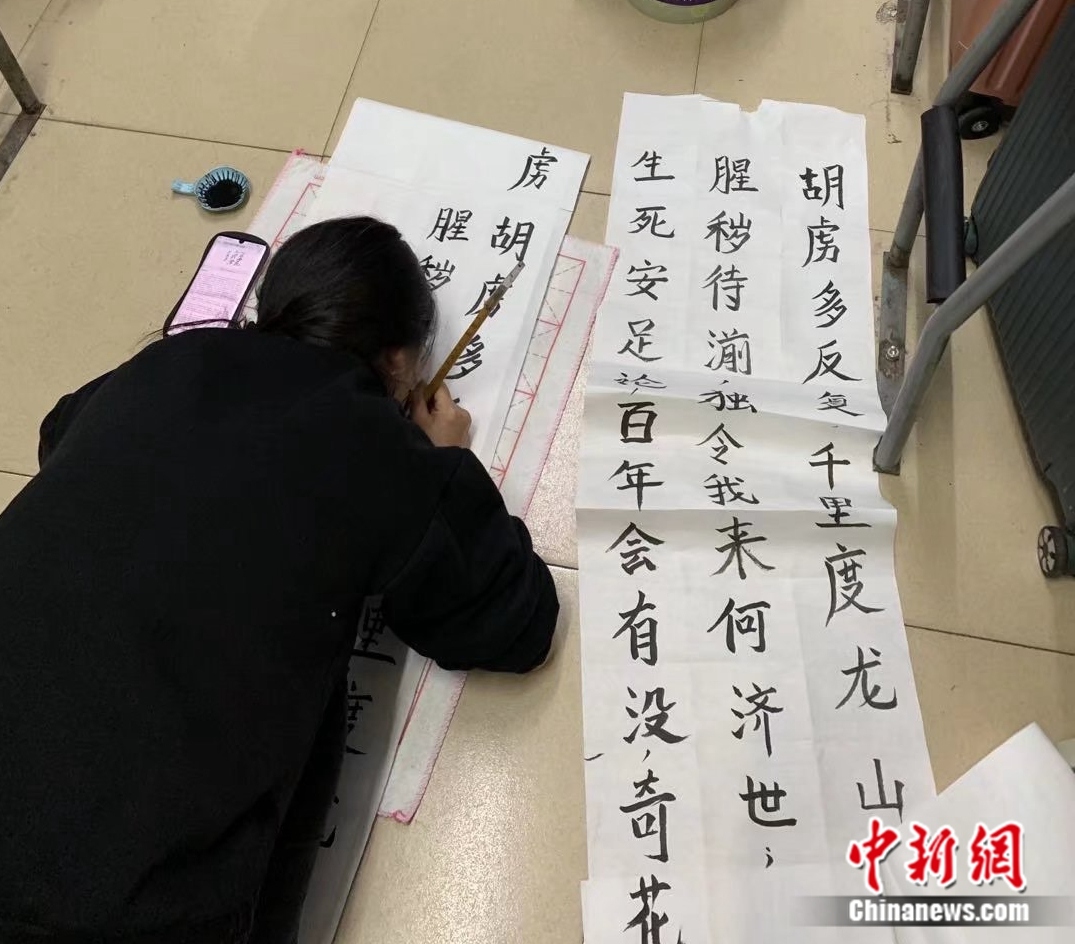 胡虏多反复,千里度龙山
腥秽待湔独令我来何济世;
生死安足论,百年会有没,奇花
虏
胡虏多
腥秽
里度
中新網
Chinanews.com